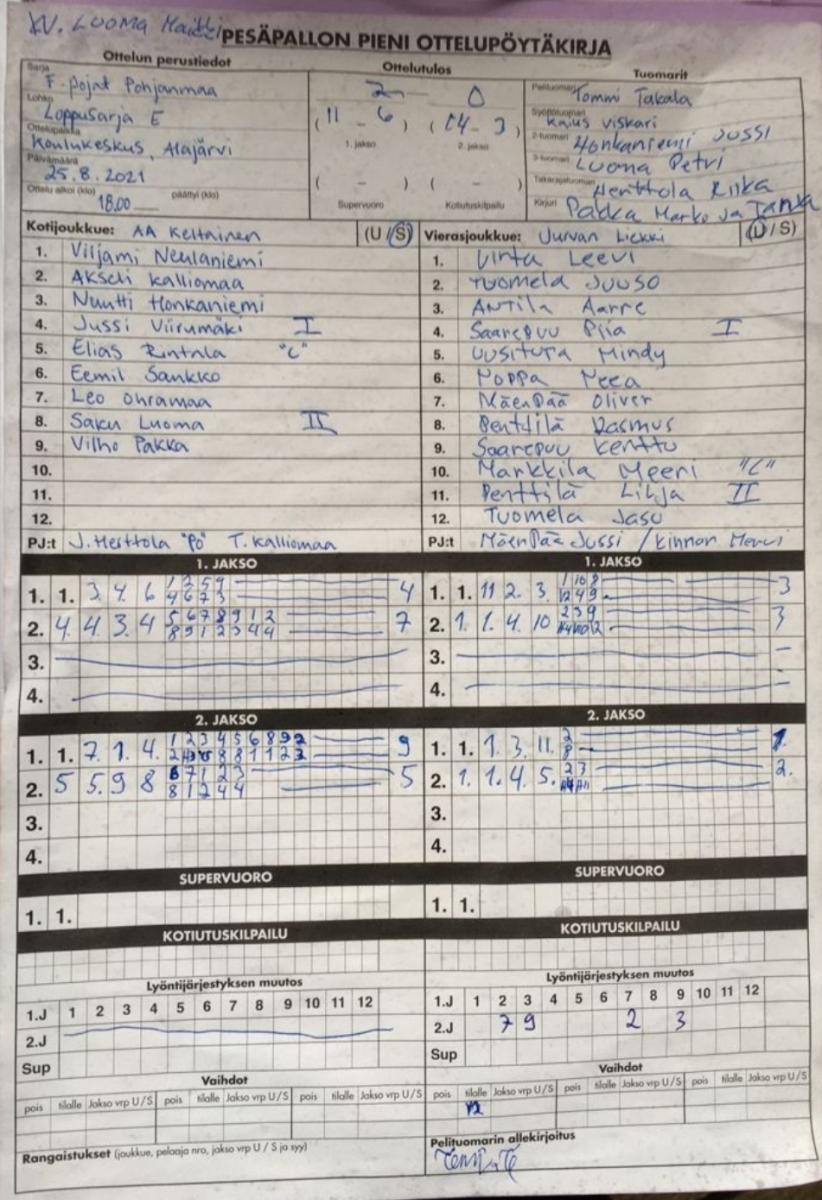 KV. LUOMA Matti
PESÄPALLON PIENI OTTELUPÖYTÄKIRJA
Ottelun perustiedot
Sarja F-pojat Pohjanmaa
Lohko Loppusarja E
Ottelupaikka Koulukeskus, Alajärvi
Päivämäärä 25.8.2021
Ottelu alkoi (klo) 18.00 päättyi (klo)
Ottelutulos
2 - 0
(11 - 6) (14 - 3)
1. jakso 2. jakso
( - ) ( - )
Supervuoro Kotiutuskilpailu
Tuomarit
Pelituomari Tommi Takala
Syöttötuomari Kaius Viskari
2-tuomari Honkaniemi Jussi
3-tuomari Luoma Petri
Takarajatuomari Henttola Riika
Kirjuri Pakka Marko ja
Kotijoukkue: AA Keltainen (U / S)
1. Viljami Neulaniemi
2. Akseli Kalliomaa
3. Nuutti Honkaniemi
4. Jussi Viirumäki I
5. Elias Rintala "C"
6. Eemil Sankko
7. Leo Ohramaa
8. Saku Luoma II
9. Vilho Pakka
10.
11.
12.
PJ:t J. Herttola "PO" T. Kalliomaa
Vierasjoukkue: Jurvan Liekki (U / S)
1. Vinta Leevi
2. Tuomela Juuso
3. Antila Aarre
4. Saarepuu Piia I
5. Uusitupa Mindy
6. Poppa Neea
7. Mäenpää Oliver
8. Penttilä Rasmus
9. Saarepuu Kerttu
10. Markkila Meeri "C"
11. Penttilä Lilja II
12. Tuomela Jasu
PJ:t Mäenpää Jussi / Kinnari
1. JAKSO
1. 1. 3. 4. 6 4
2. 4. 4 3. 4 5 6 7 8 9 1 2 7
8 9 1 2 3 4 4
3.
4.
1. JAKSO
1. 1. 11 2. 3. 3
2. 1. 1. 4. 10 2 3 9 3
3. –
4. –
2. JAKSO
1. 1. 7. 1. 4. 1 2 3 4 5 6 8 9 2 9
2. 5 5. 9 8 6 7 1 2 3 5
8 1 2 4 4
3.
4.
2. JAKSO
1. 1. 1. 3. 11. 2 1.
8
2. 1. 1. 4. 5. 2 3 2.
3.
4.
SUPERVUORO
1. 1.
SUPERVUORO
1. 1.
KOTIUTUSKILPAILU
KOTIUTUSKILPAILU
Lyöntijärjestyksen muutos
1.J 1 2 3 4 5 6 7 8 9 10 11 12
2.J
Sup
Lyöntijärjestyksen muutos
1.J 1 2 3 4 5 6 7 8 9 10 11 12
2.J 7 9 2 3
Sup
Vaihdot
pois tilalle Jakso vrp U/S pois tilalle Jakso vrp U/S pois tilalle Jakso vrp U/S
Vaihdot
pois tilalle Jakso vrp U/S pois tilalle Jakso vrp U/S pois tilalle Jakso vrp U/S
12
Rangaistukset (joukkue, pelaaja nro, jakso vrp U / S ja syy)
Pelituomarin allekirjoitus